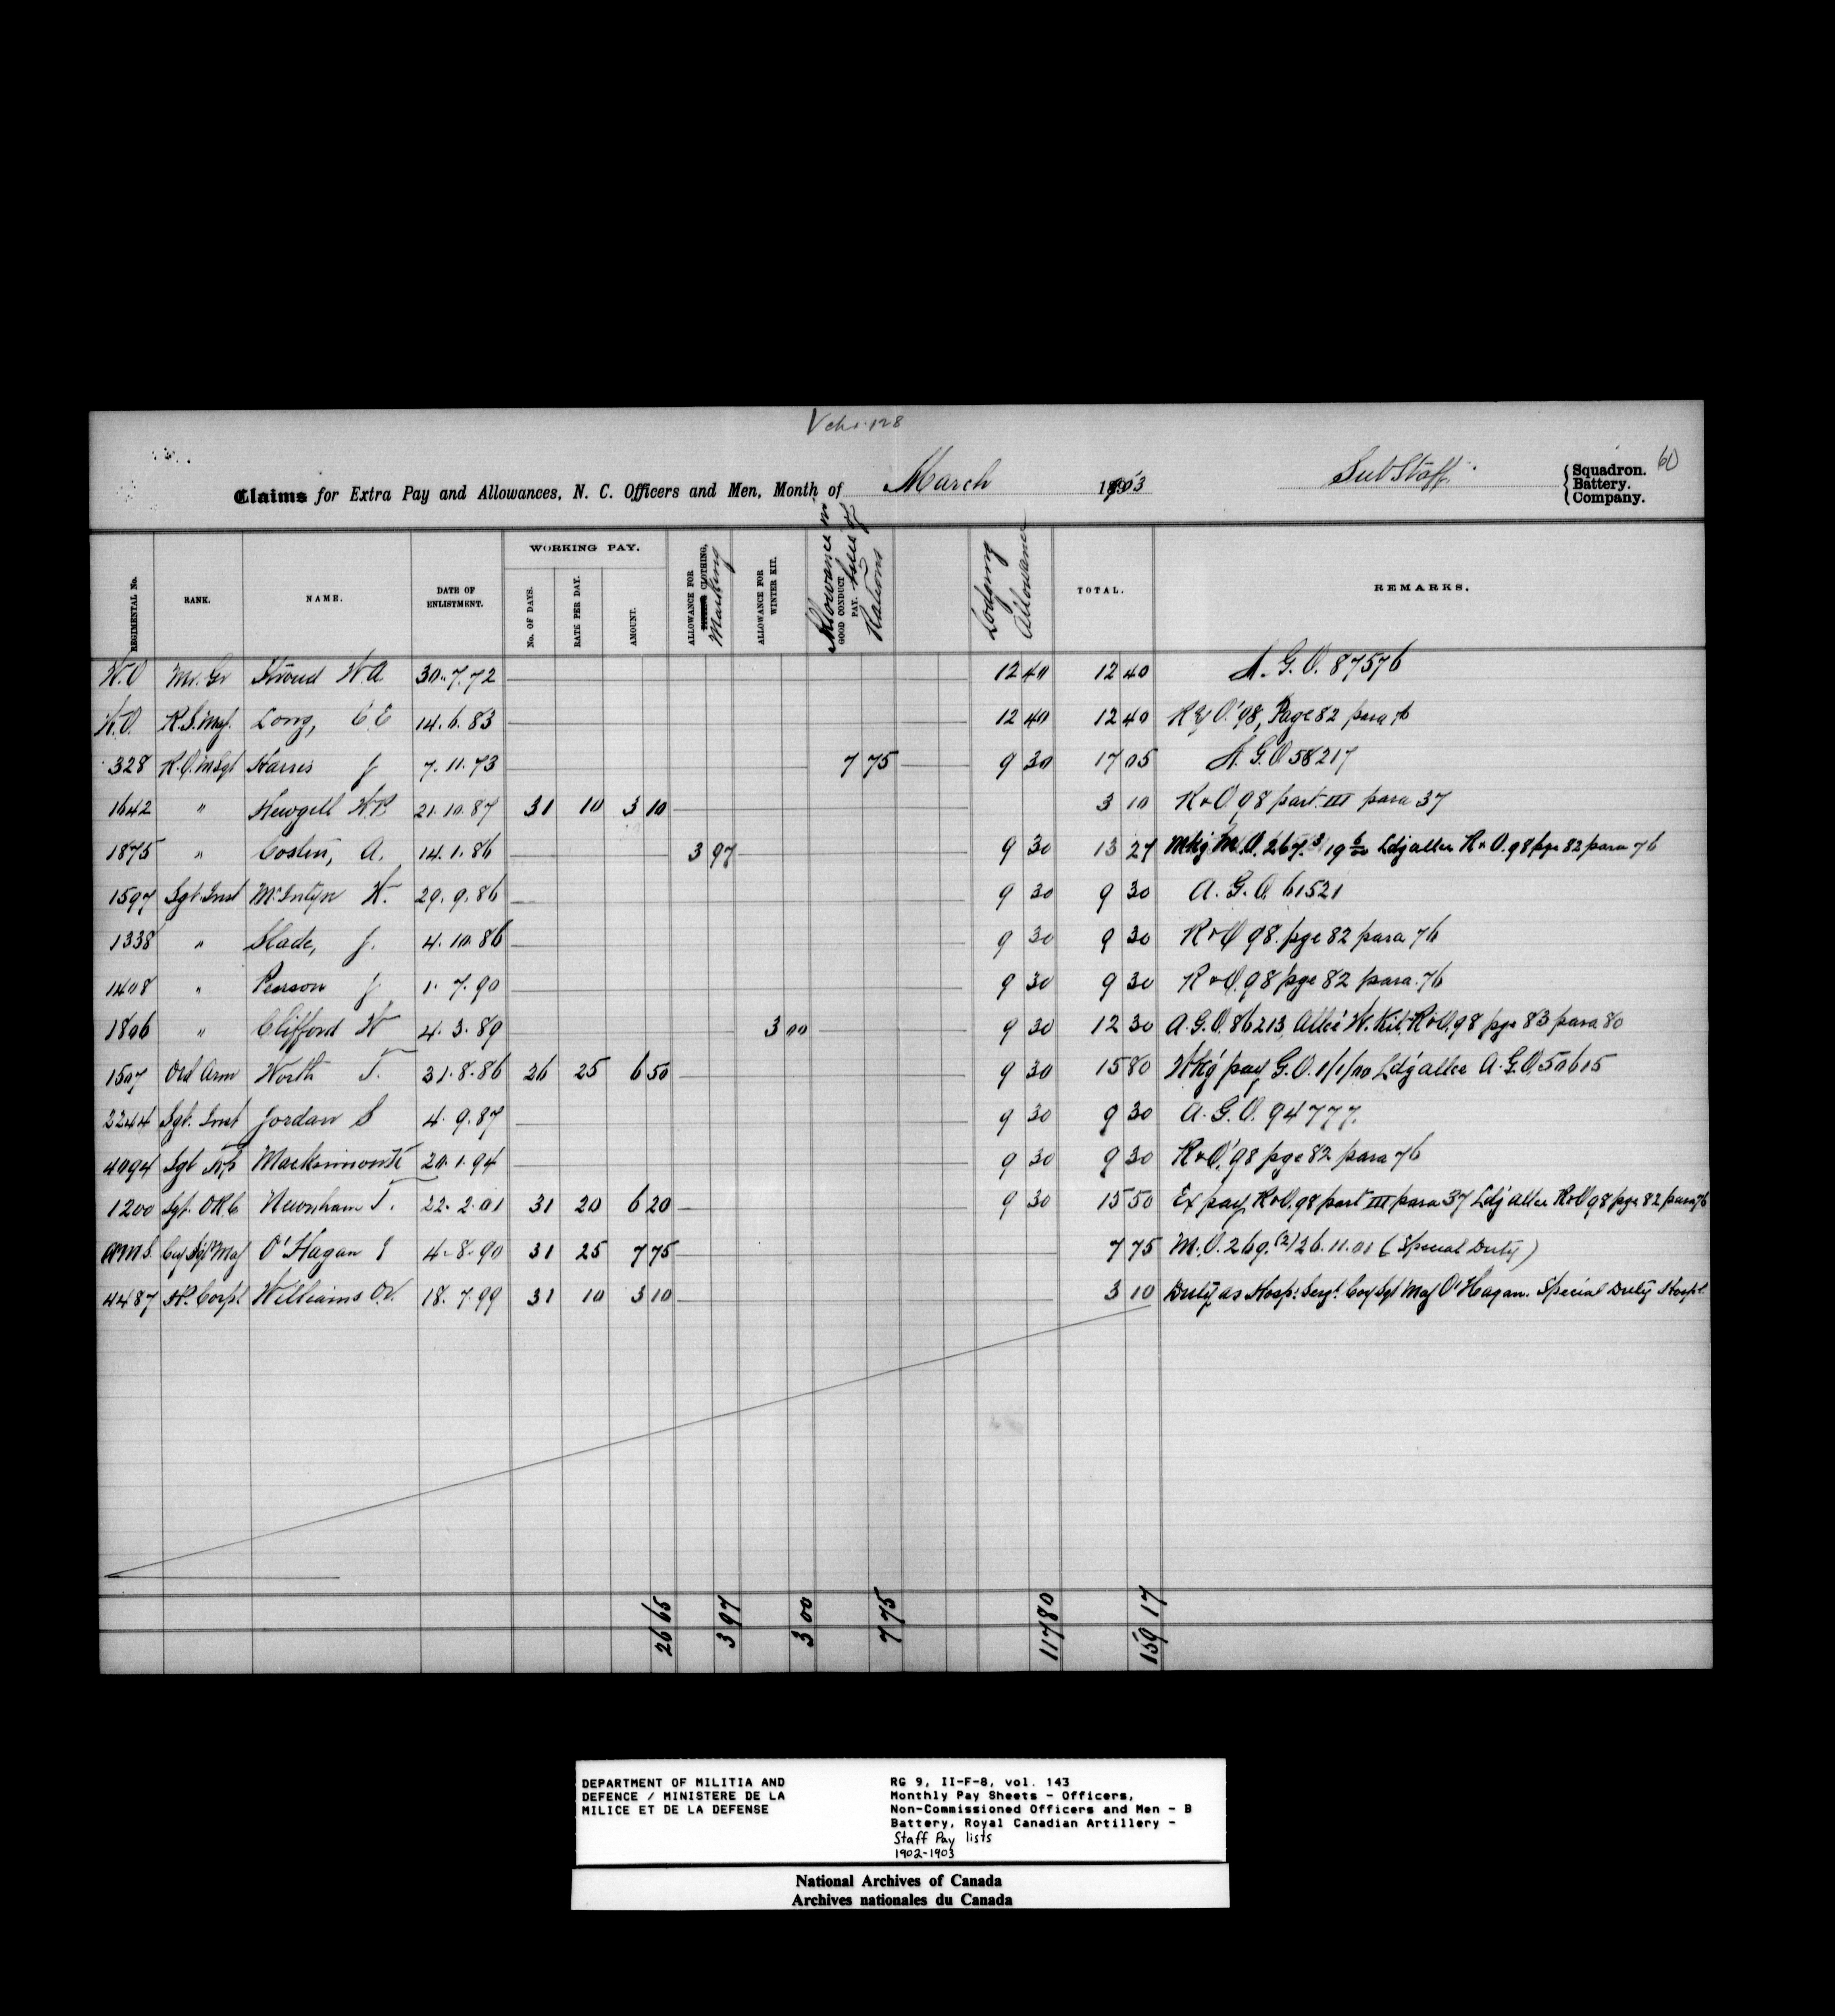 Vchr. 128
60
Claims for Extra Pay and Allowances, N. C. Officers and Men, Month of March 1903 Sub Staff. {Squadron. Battery. Company.
REGIMENTAL No. RANK. NAME. DATE OF ENLISTMENT. WORKING PAY. No. OF DAYS. RATE PER DAY. AMOUNT. ALLOWANCE FOR CLOTHING, Marking ALLOWANCE FOR WINTER KIT. GOOD CONDUCT PAY. Allowance in lieu of Rations Lodging Allowance TOTAL. REMARKS.
W.O Mr. Gr Stroud W.A. 30.7.72 12 40 12 40 A. G. O. 87576
W.O. R.S. Maj. Long, C E 14.6.83 12 40 12 40 R & O. '98, Page 82 para 76
328 R.Q.M Sgt Harris J 7.11.73 7 75 9 30 17 05 A. G. O 58217
1642 " Hewgill 21.10.87 31 10 3 10 3 10 R & O. 98 part. III para 37
1875 " Costin, A. 14.1.86 3 97 9 30 13 27 Mkg M.O. 267. Ldg allce R & O. 98 pge 82 para 76
1597 Sgt. Inst McIntyre 29.9.86 9 30 9 30 A. G. O. 61521
1338 " Slade, J. 4.10.86 9 30 9 30 R & O 98. pge 82 para. 76
1408 " Pearson J 1.7.90 9 30 9 30 R & O. 98 pge 82 para. 76
1806 " Clifford W 4.3.89 3 00 9 30 12 30 A.G.O. 86213, Allce W. Kit, R & O. 98 pge 83 para 80
1507 Ord Arm Worth T. 31.8.86 26 25 6 50 9 30 15 80 Wkg pay G.O. 1/1/00 Ldg allce A.G.O. 50615
2244 Sgt. Inst Jordan S 4.9.87 9 30 9 30 A. G. O. 94777.
4094 Sgt 20.1.94 9 30 9 30 R & O. '98 pge 82 para 76
1200 Sgt. O.R.C Newnham T. 22.2.01 31 20 6 20 9 30 15 50 Ex pay, R & O. 98 part III para 37 Ldg allce R & O 98 pge 82 para 76
A.M.S. Coy Sgt Maj O'Hagan 4.8.90 31 25 7 75 7 75 M.O. 269. (2) 26.11.01 (Special Duty)
4487 Corpl Williams O.V. 18.7.99 31 10 3 10 3 10 Duty as Hosp. Sergt. Coy Sgt Maj O'Hagan. Special Duty Hospl.
26 65 3 97 3 00 7 75 117 80 159 17
DEPARTMENT OF MILITIA AND
DEFENCE / MINISTERE DE LA
MILICE ET DE LA DEFENSE
RG 9, II-F-8, vol. 143
Monthly Pay Sheets - Officers,
Non-Commissioned Officers and Men - B
Battery, Royal Canadian Artillery -
Staff Pay lists
1902-1903
National Archives of Canada
Archives nationales du Canada